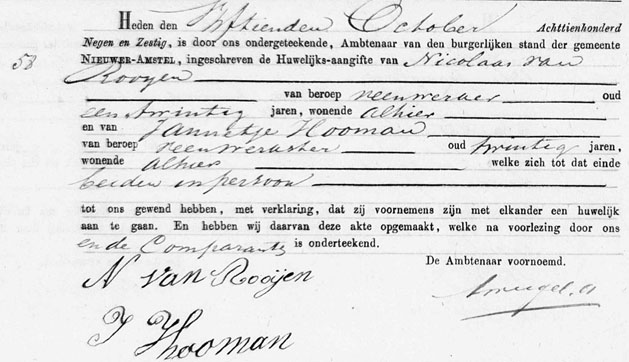 Heden den Vijftienden October Achttienhonderd
Negen en Zestig, is door ons ondergeteekende, Ambtenaar van den burgerlijken stand der gemeente
58 Nieuwer-Amstel, ingeschreven de Huwelijks-aangifte van Nicolaas van
Rooyen
van beroep veenwerker oud
eenentwintig jaren, wonende alhier
en van Jannetje Hooman
van beroep veenwerkster oud twintig jaren,
wonende alhier welke zich tot dat einde
beiden in persoon
tot ons gewend hebben, met verklaring, dat zij voornemens zijn met elkander een huwelijk
aan te gaan. En hebben wij daarvan deze akte opgemaakt, welke na voorlezing door ons
en de Comparanten is onderteekend.
De Ambtenaar voornoemd.
N van Rooijen
J Hooman